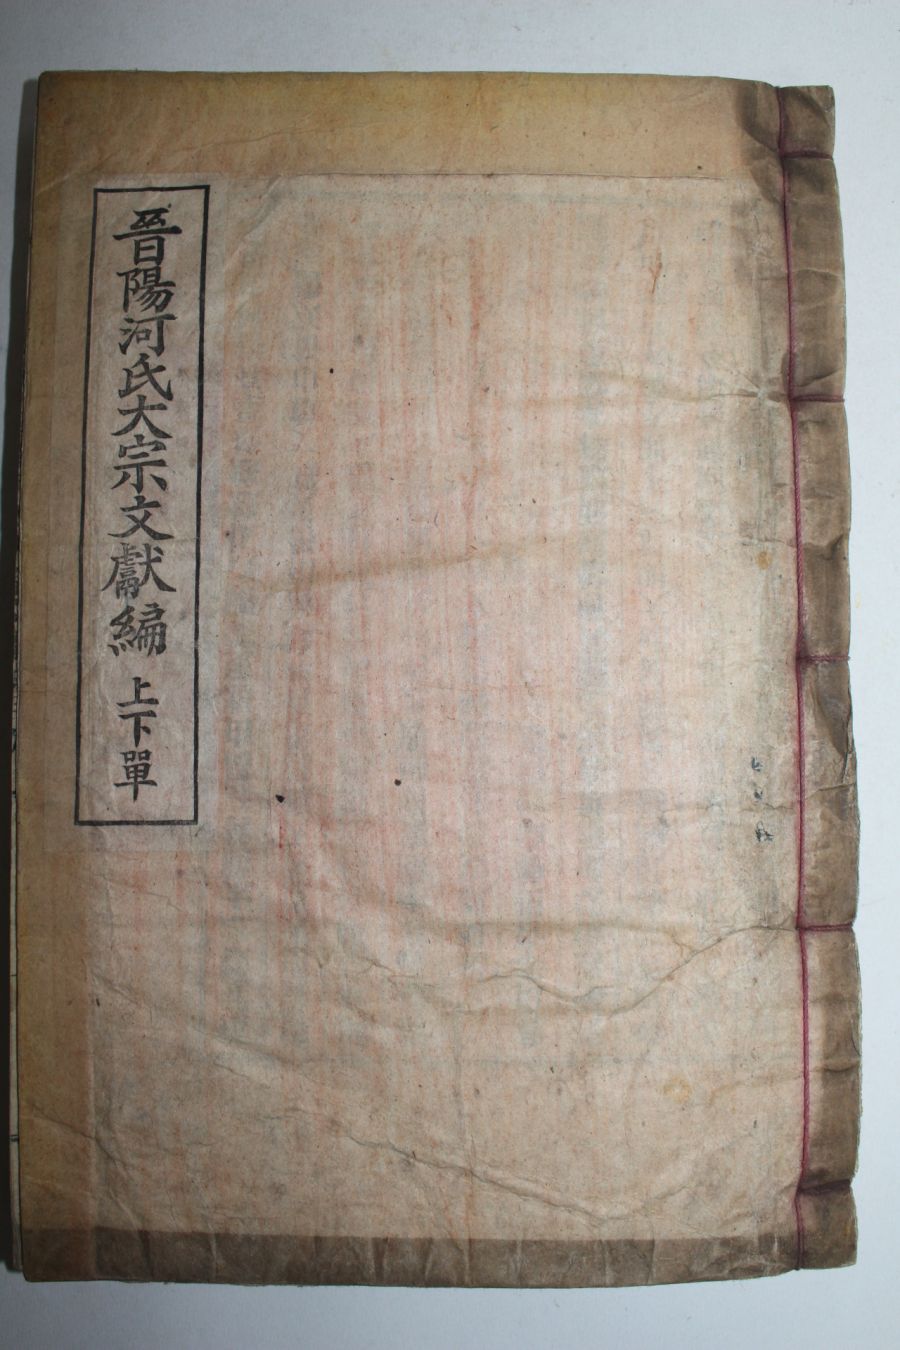 晉陽河氏大宗文獻編 上下單